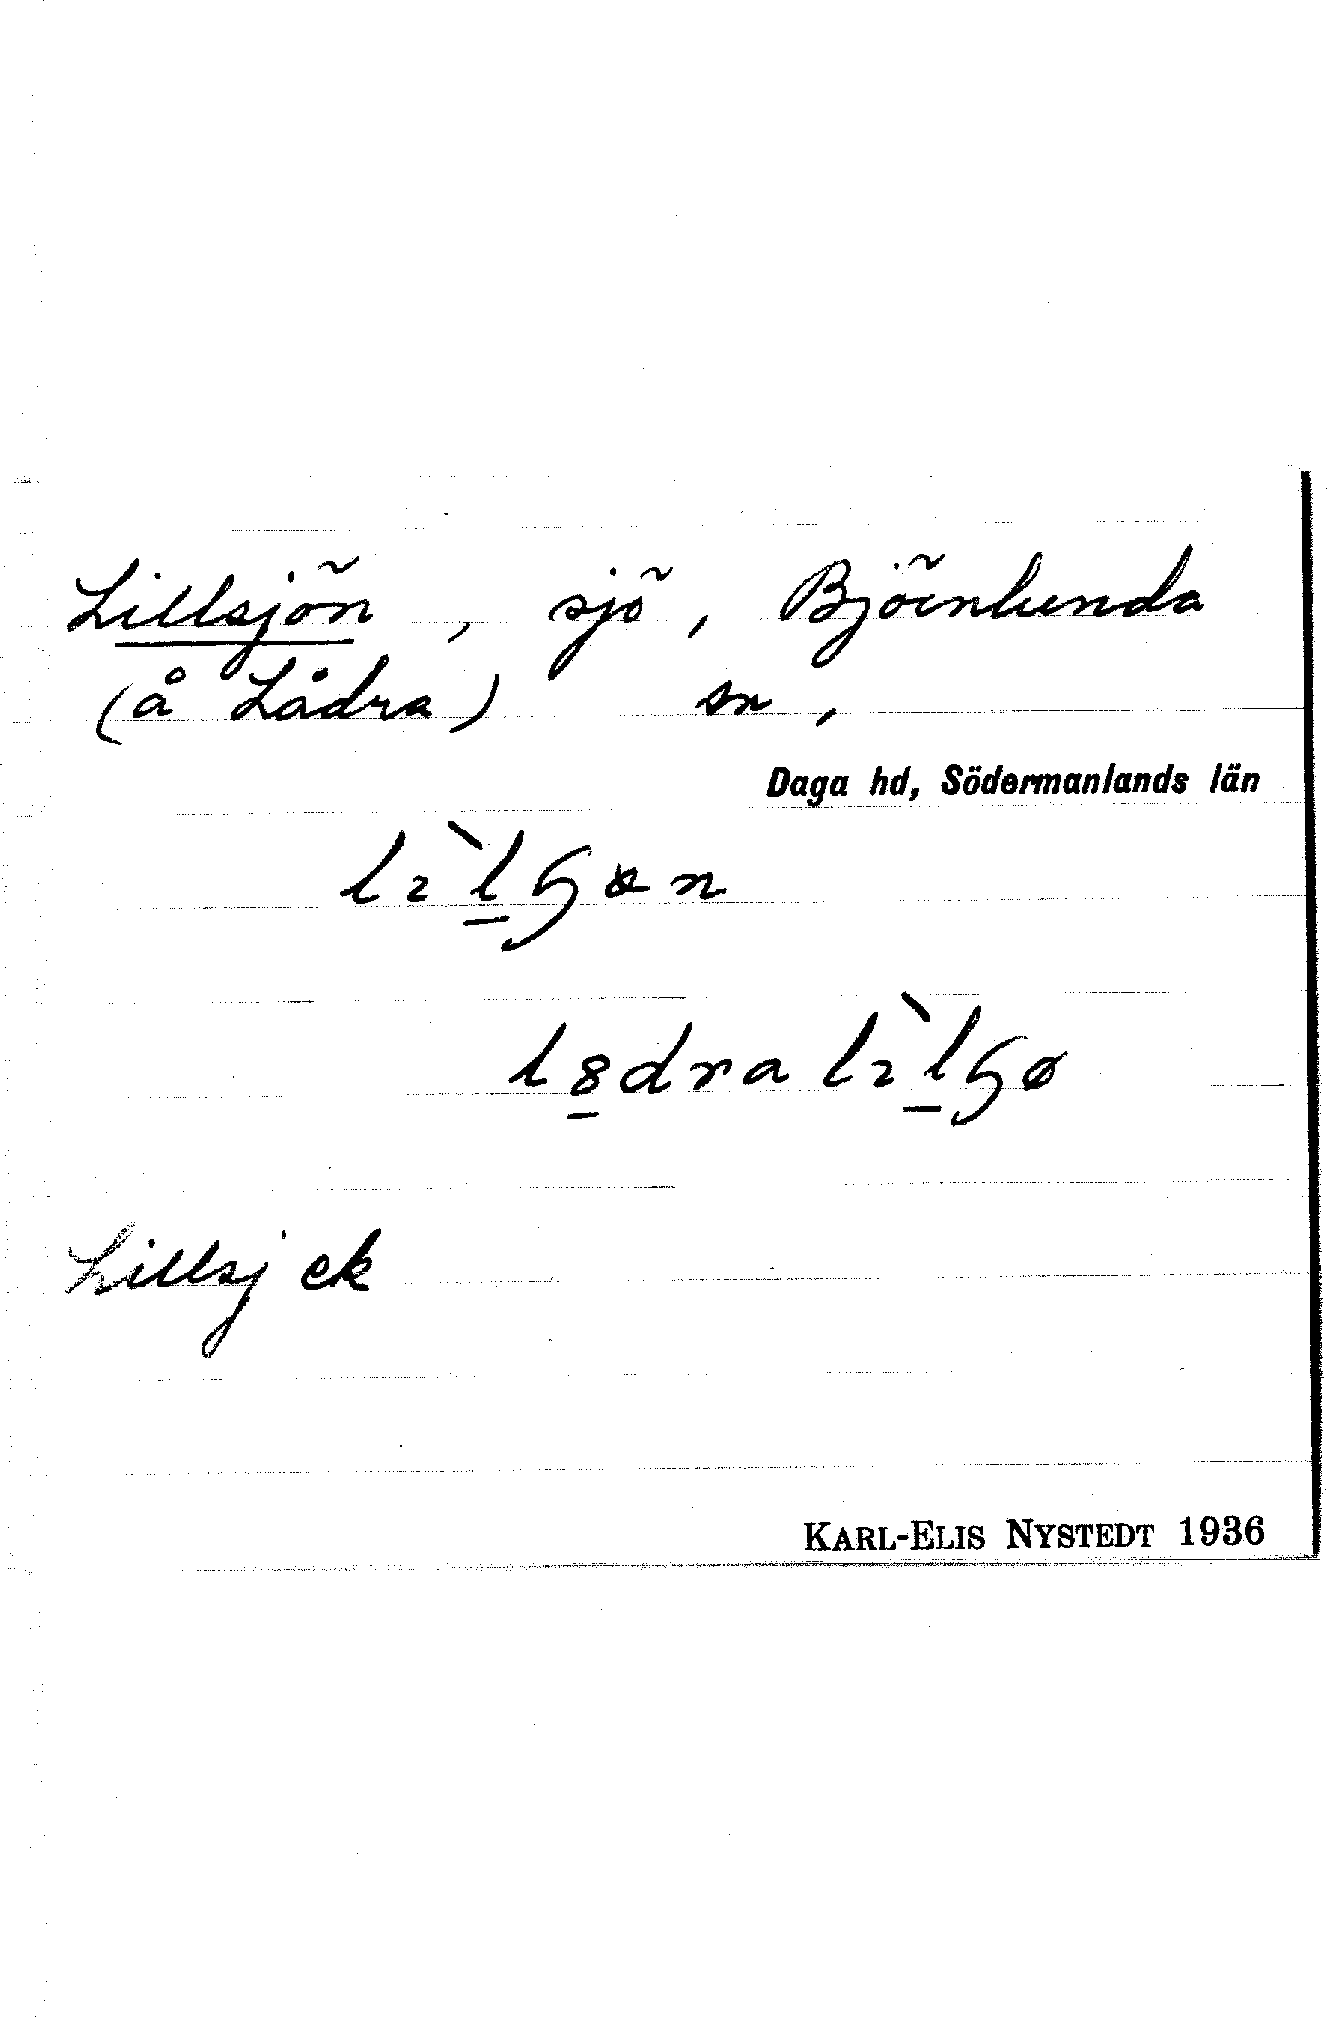 Lillsjön, sjö, Björnlunda
(å Lådra) sn,
Daga hd, Södermanlands län
Lillsj ek
KARL-ELIS NYSTEDT 1936